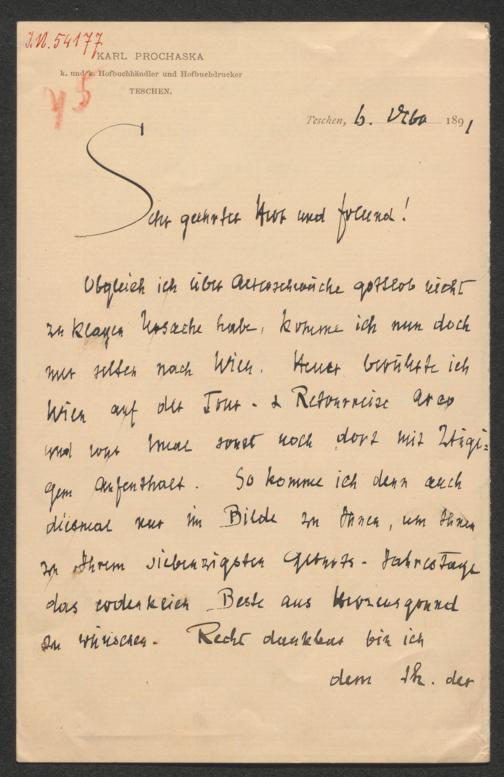 I.N. 54177
KARL PROCHASKA
k. und k. Hofbuchhändler und Hofbuchdrucker
TESCHEN.
Teschen, 6. 1891
Sehr geehrter Herr und Freund!
Obgleich ich über Altersschwäche gottlob nicht
zu klagen Ursache habe, komme ich nun doch
nur selten nach Wien. Heuer berührte ich
Wien auf der Tour- & Retourreise Arco
und war 1mal sonst noch dort mit 2tägi-
gem Aufenthalt. So komme ich denn auch
diesmal nur im Bilde zu Ihnen, um Ihnen
zu Ihrem siebenzigsten Geburts-Jahrestage
das erdenklich Beste aus Herzensgrund
zu wünschen. Recht dankbar bin ich
dem der